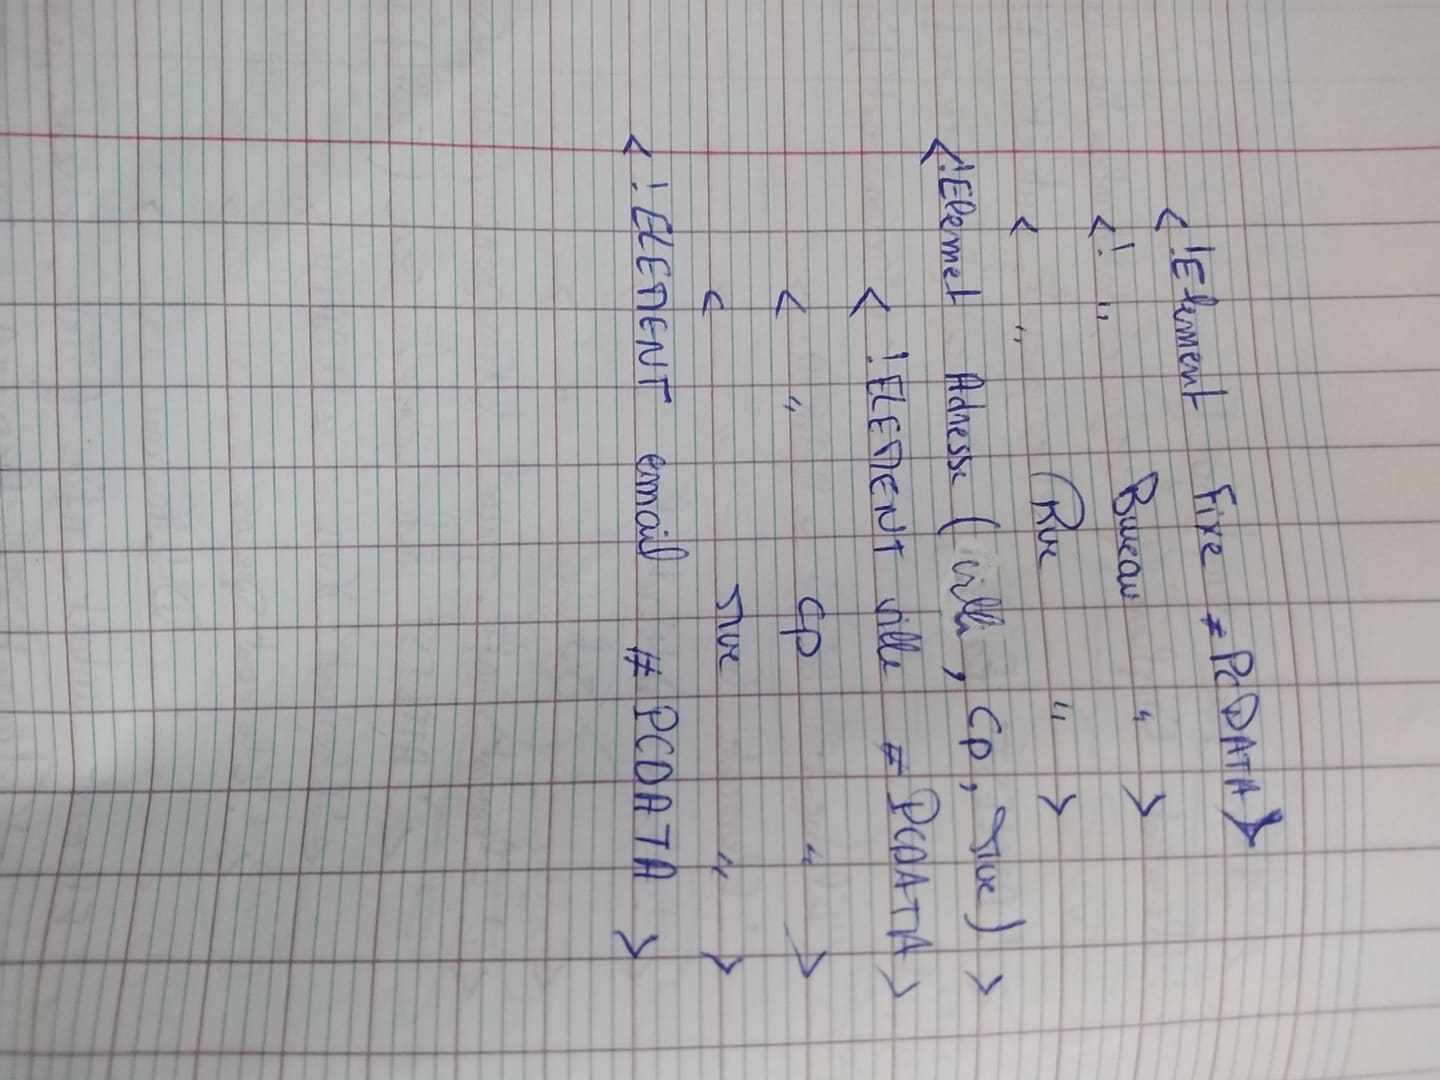 <!Element Fixe #PCDATA>
<! " Bureau " >
< " Rue " >
<!Elemet Adresse (ville, Cp, rue) >
< !ELEMENT ville #PCDATA>
< " Cp " >
< rue " >
< !ELEMENT email # PCDATA >